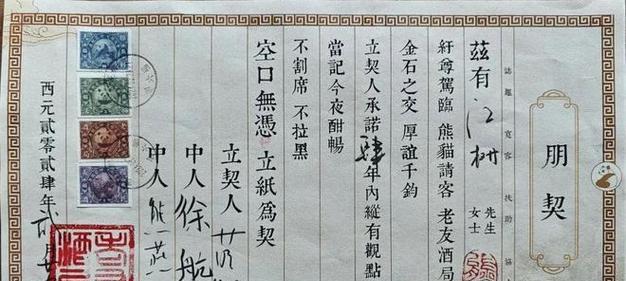 朋契
誌趣 寬容 扶助
茲有 江樹 先生
女士
紆尊駕臨 熊貓請客 老友酒局
金石之交 厚誼千鈞
立契人承諾 肆 年內縱有觀點
當記今夜酣暢
不割席 不拉黑
空口無憑 立紙為契
立契人
中人 徐航
中人 熊燕
西元貳零貳肆年 貳 月